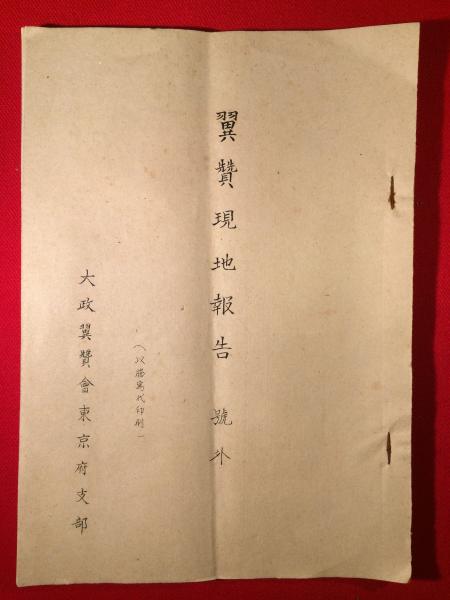 翼贊現地報告 號外
（以謄寫代印刷）
大政翼贊會東京府支部